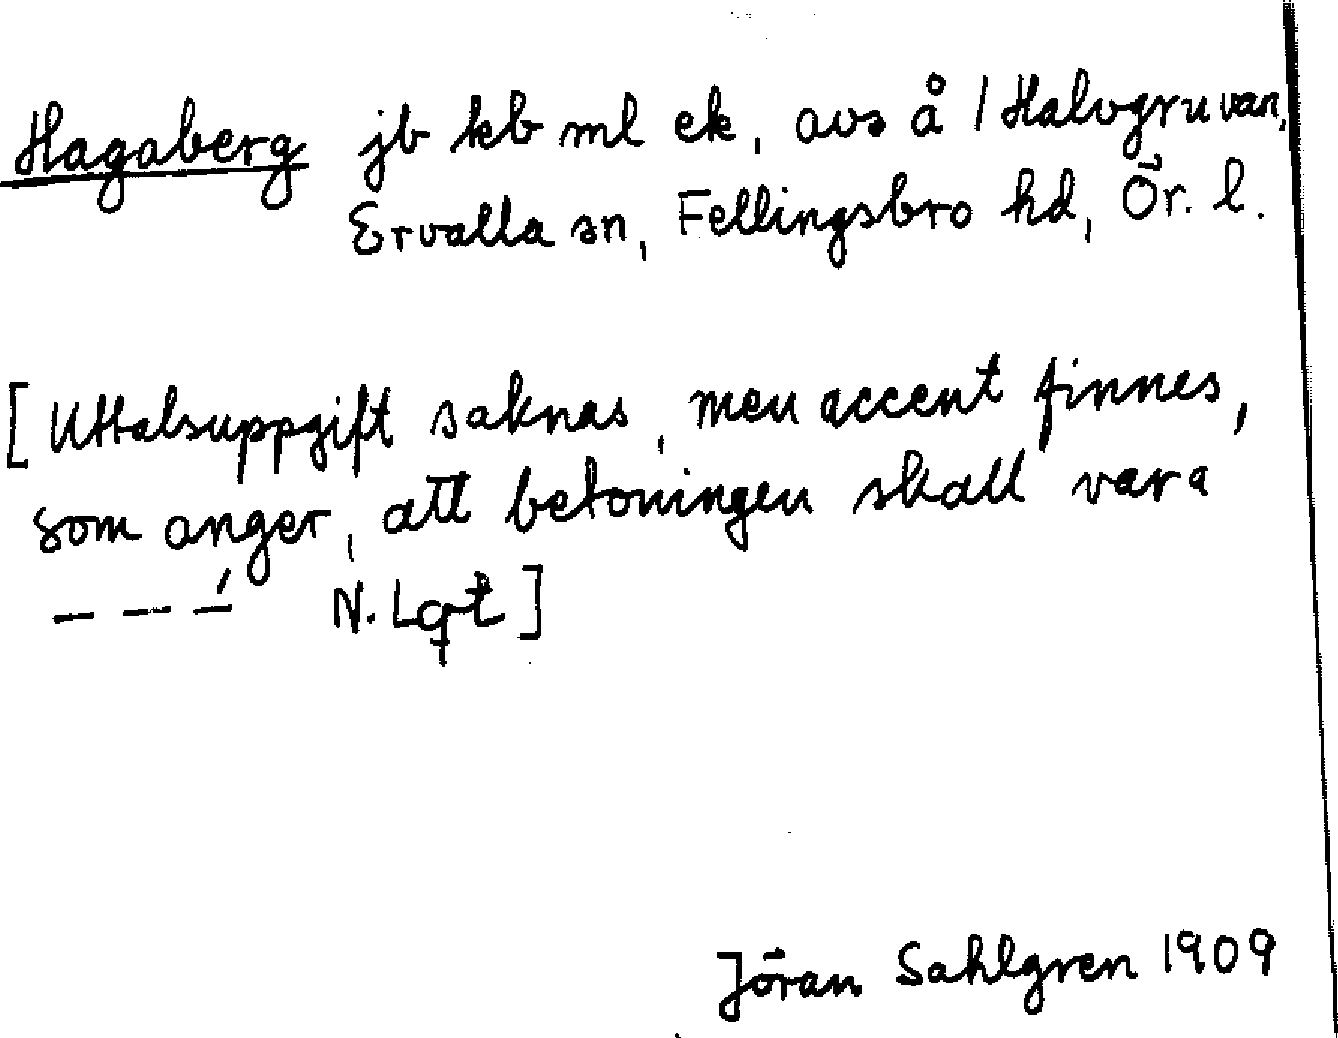 Hagaberg jb kb ml ek, avs å / Halvgruvan,
Ervalla sn, Fellingsbro hd, Ör. l.
[Uttalsuppgift saknas, men accent finnes,
som anger, att betoningen skall vara
– – –́ N. Lqt]
Jöran Sahlgren 1909